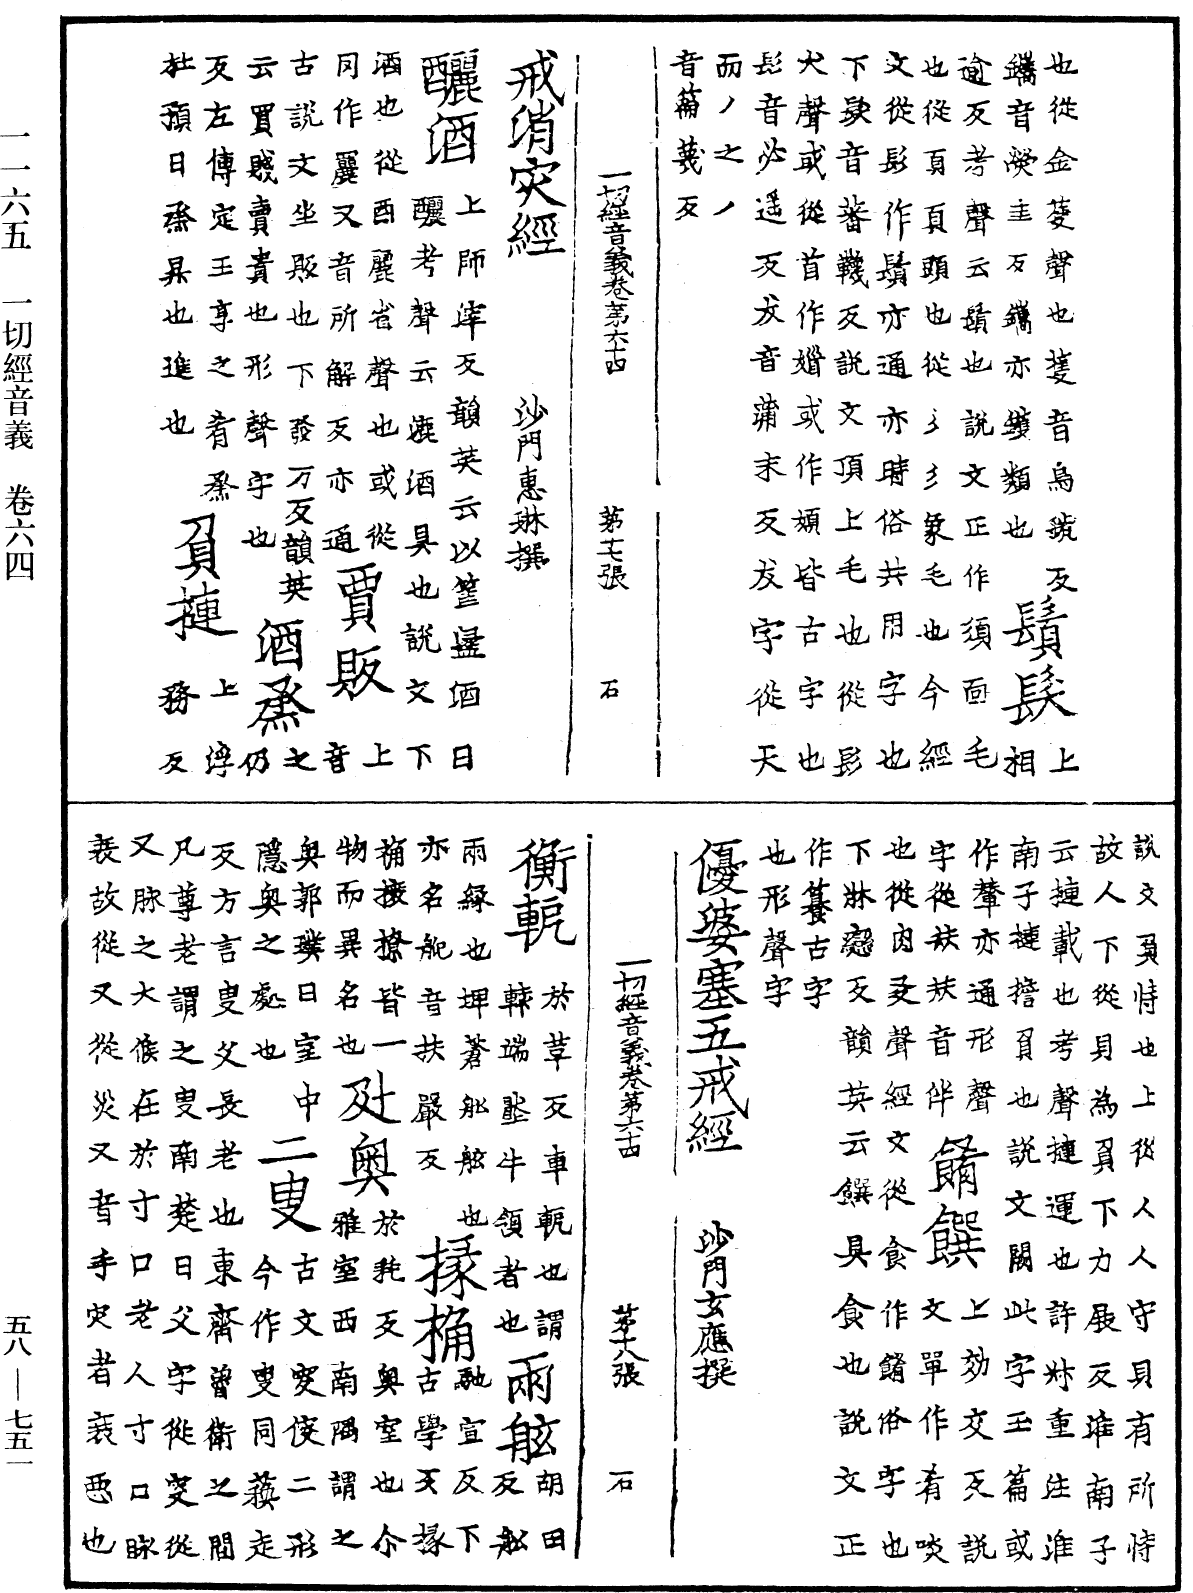 也從金蒦聲也蒦音烏虢反鬚髮上
鑴音𤏲圭反鑴亦鑊類也 相
逾反考聲云鬚也說文正作須面毛
也從頁頁頭也從彡彡象毛也今經
文從髟作鬚亦通亦時俗共用字也
下𩬊音蕃韈反說文頂上毛也從髟
犬聲或從首作𩠙或作頞皆古字也
髟音必遙反犮音蒲末反犮字從犬
而丿之丿
音篇蔑反
一切經音義卷第六十四 第十七張 石
戒消灾經 沙門惠琳撰
釃酒上師滓反韻英云以筐盪酒曰
釃考聲云漉酒具也說文下
酒也從酉麗省聲也或從上
同作麗又音所解反亦通賈販音
古說文坐販也下發万反韻英之
云買賤賣貴也形聲字也酒𤋱仍
反左傳定王享之肴𤋱上浮
杜預曰𤋱昇也進也負揵務反
說文負恃也上從人人守貝有所恃
故人下從貝為負下力展反淮南子
云揵載也考聲揵運也許叔重注淮
南子揵擔負也說文闕此字玉篇或
作輦亦通形聲餚饌上効交反說
字從㚘㚘音伴 文單作肴啖
也從肉爻聲經文從食作餚俗字也
下牀戀反韻英云饌具食也說文正
作籑古字
也形聲字
一切經音義卷第六十四 第十八張 石
優婆塞五戒經 沙門玄應撰
衡軛於革反車軛也謂兩舷胡田
轅端壓牛領者也 反舩
兩緣也埤蒼舩舷也㨽桷馳宣反下
亦名舩音扶嚴反 古學反㨽
桷榱橑皆一 於耗反奧室也尒
物而異名也𡊅奧雅室西南隅謂之
奧郭璞曰室中 古文叜傁二形
隱奧之處也二叟今作叟同蘓走
反方言叟父長老也東齊魯衛之間
凡尊老謂之叟南楚曰父字從叜從
又脉之大候在於寸口老人寸口脉
衰故從又從灾又音手灾者衰惡也
一一六五 一切經音義 卷六四 五八—七五一